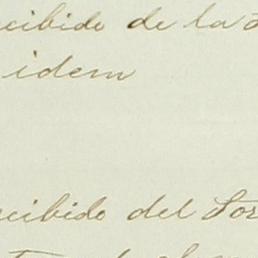 recibido de la
idem
recibido del Sor